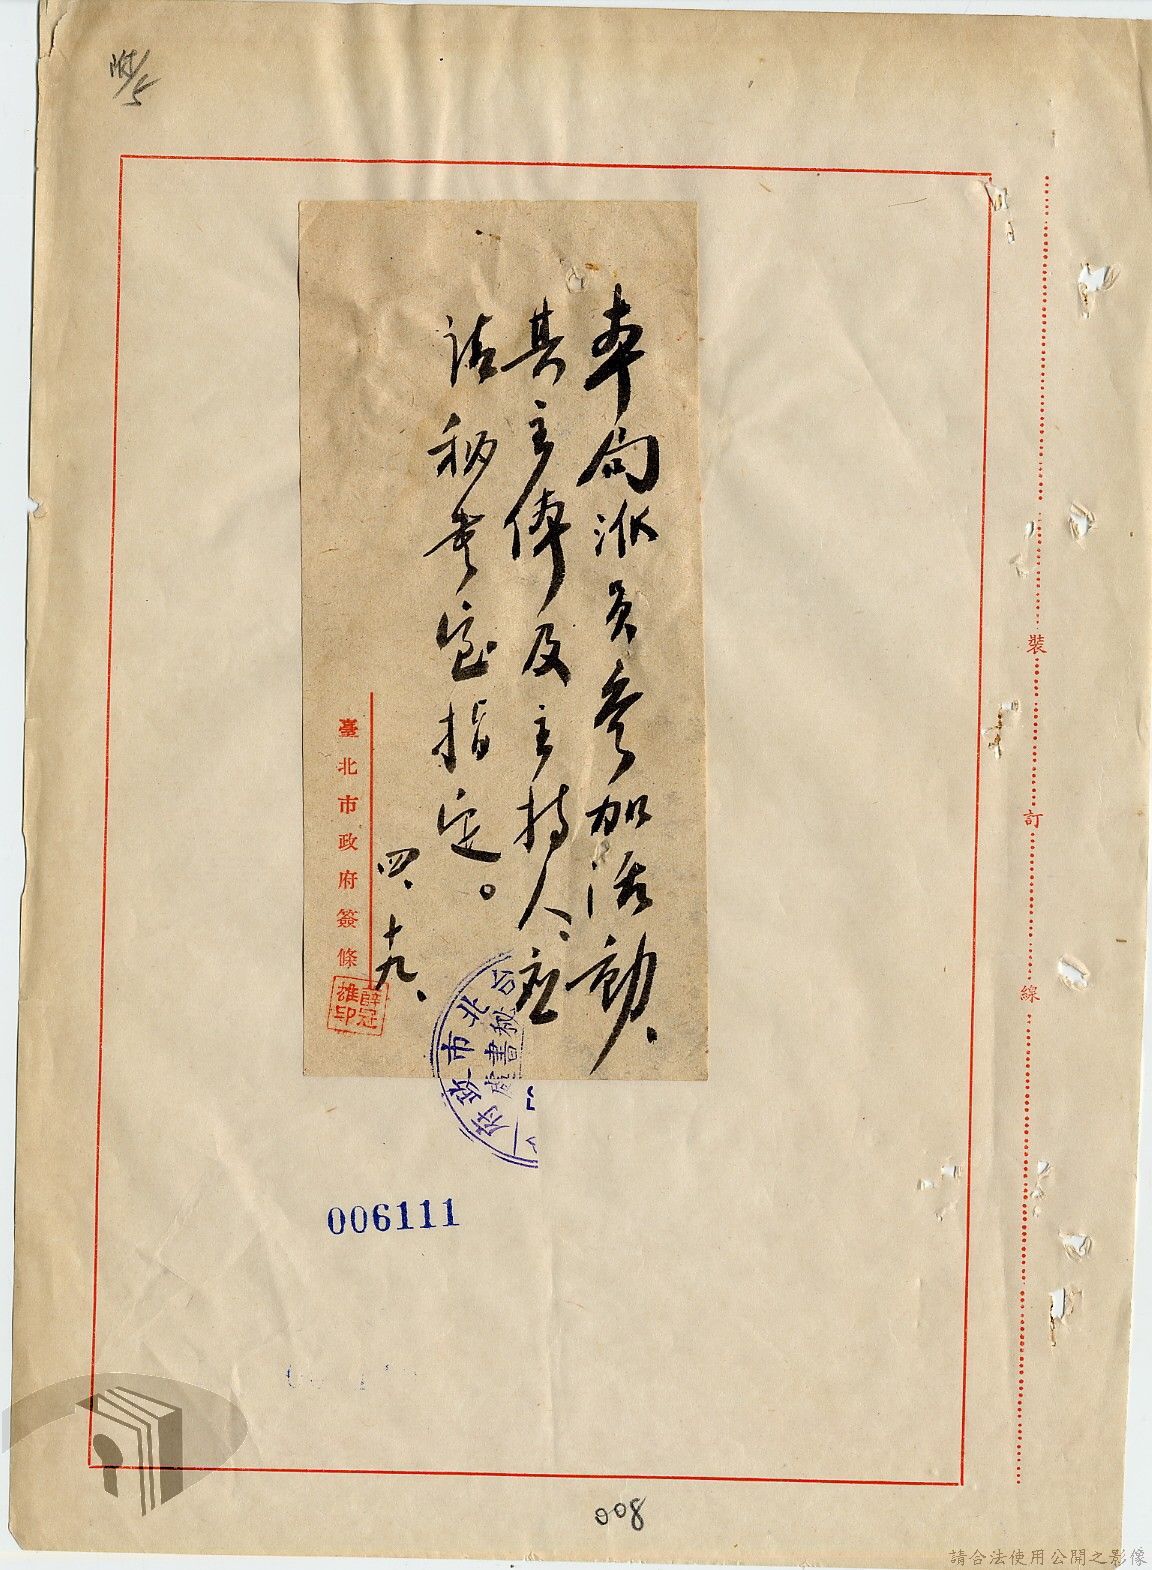 附/5
本局派員參加活動、
其主俸及主持人、應
請秘書室指定。
四、十九、
臺北市政府簽條
薛冠雄印
台北市政府
秘書處
006111
裝
訂
線
008
請合法使用公開之影像